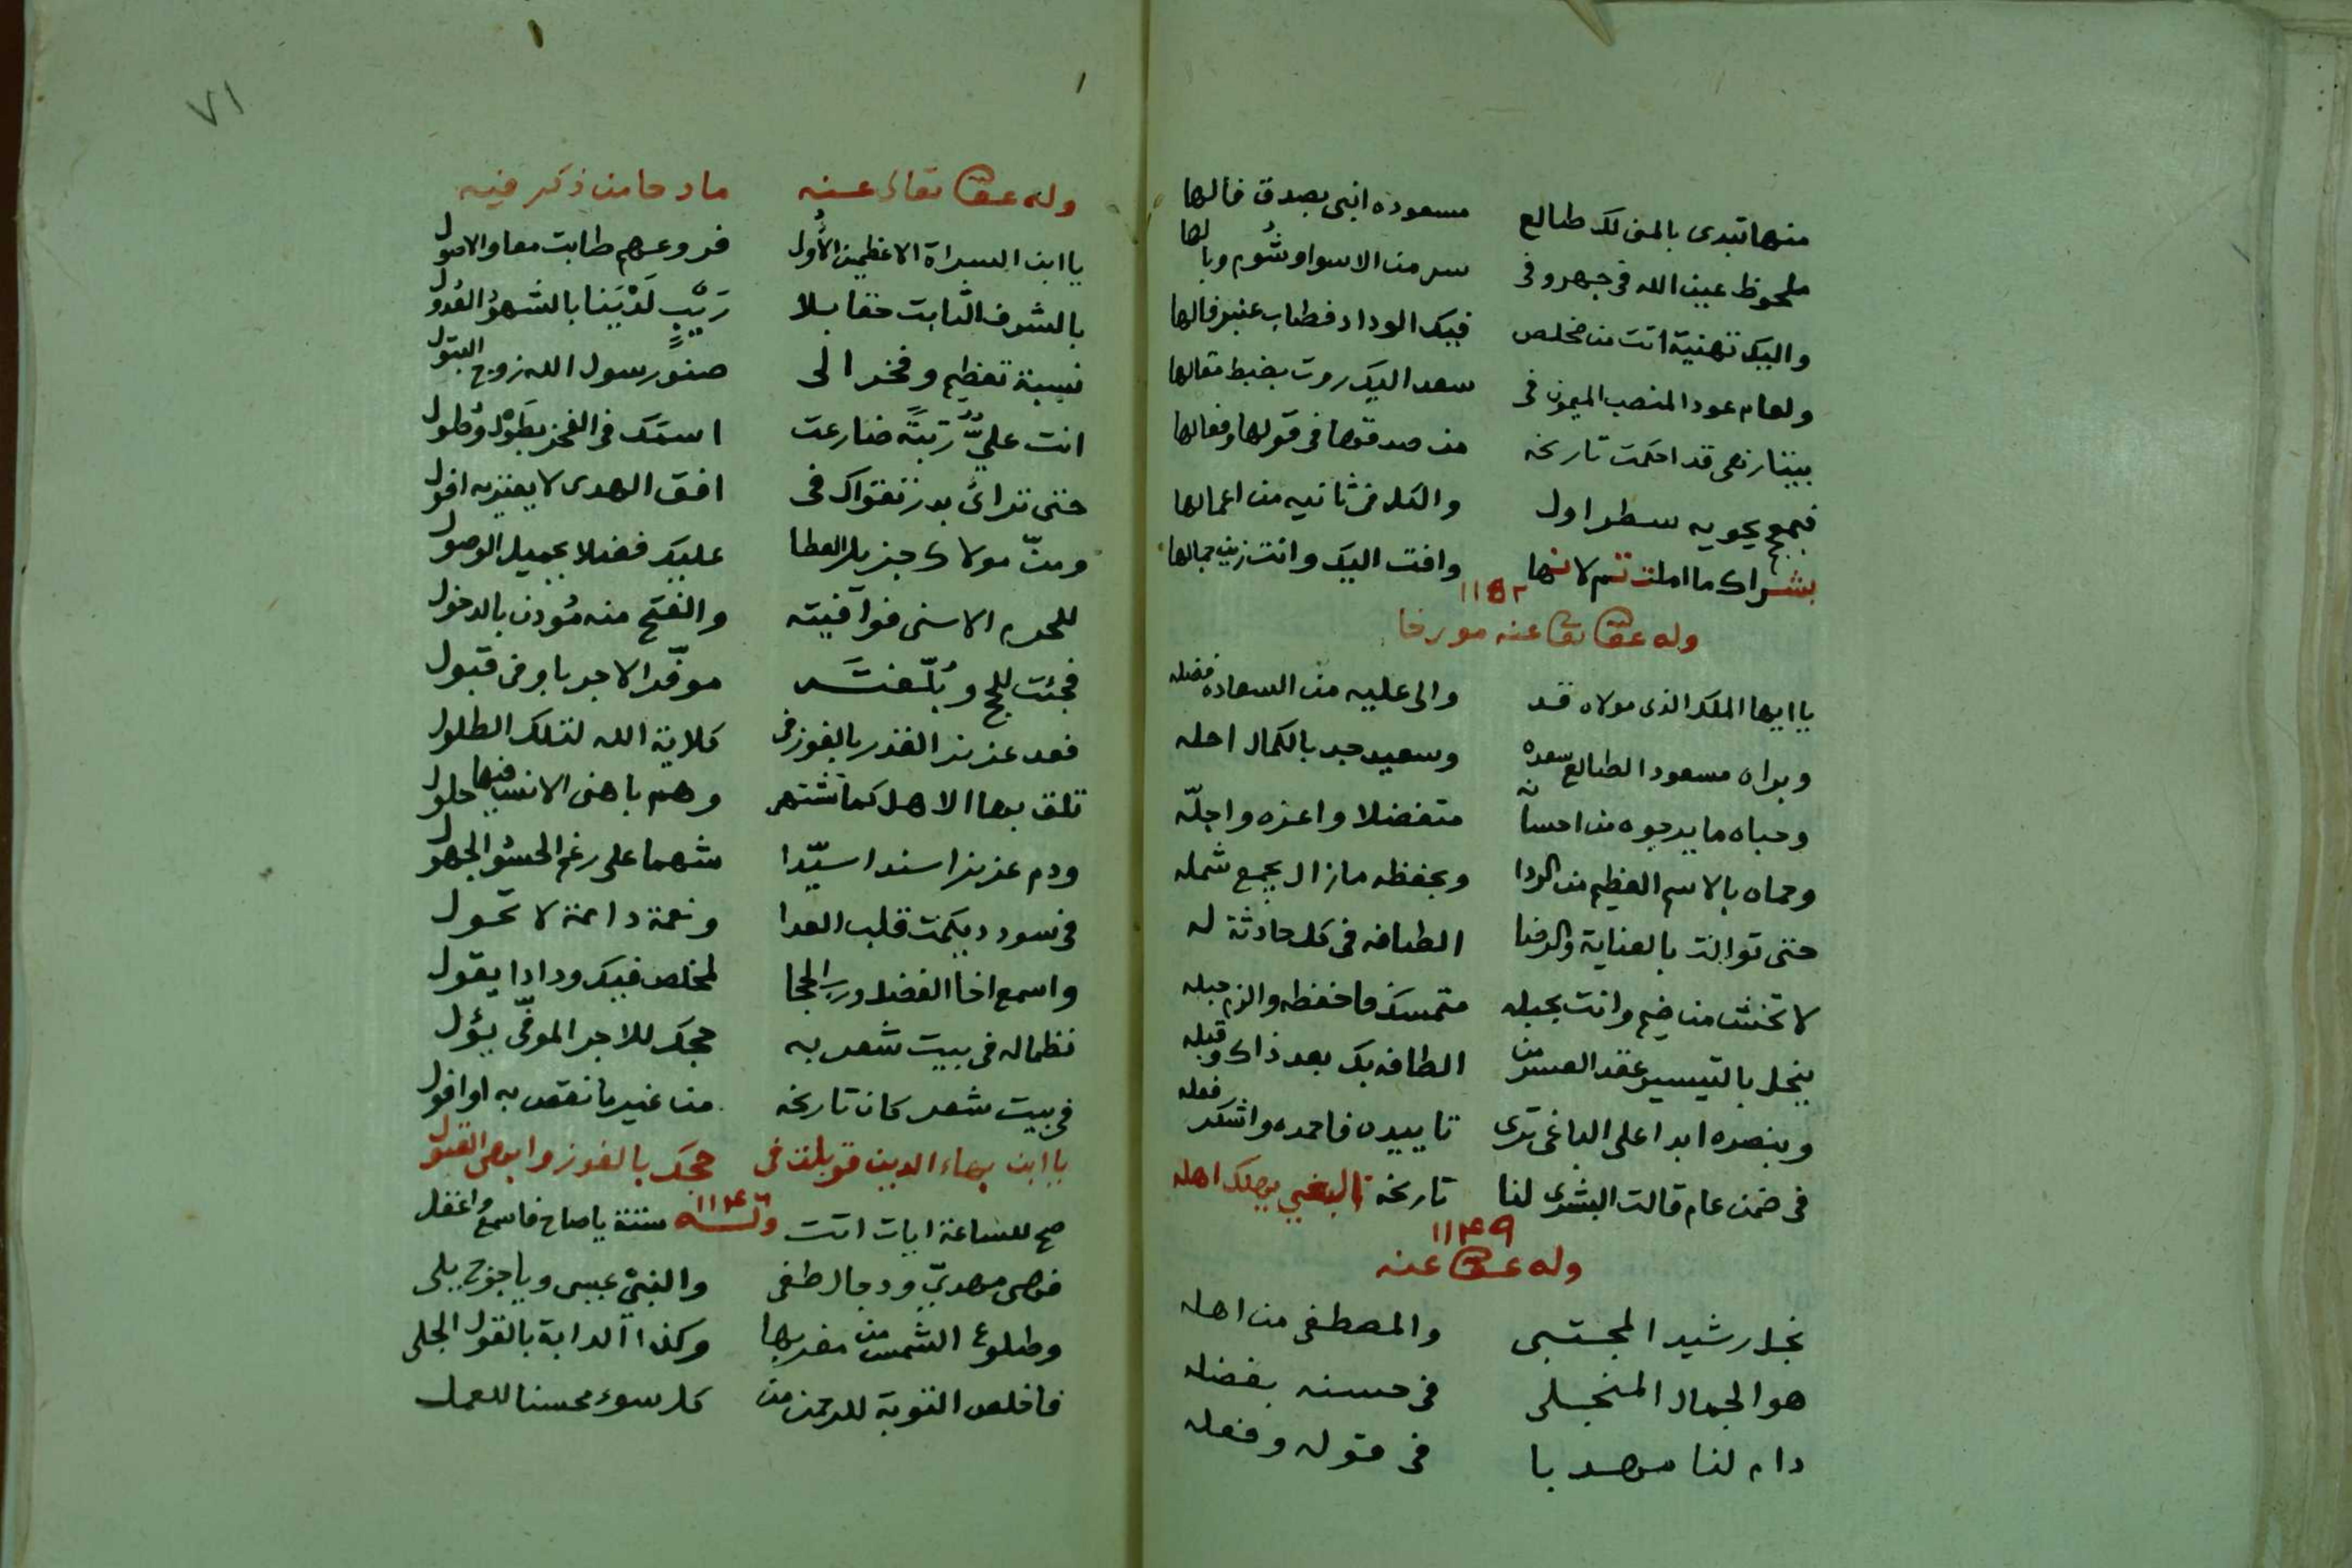 منها تبدى بالمنى لك طالع مسعوده انبى بصدق فالها
ملحوظ عين الله فى جهر وفى سر من الاسوا وشؤم وبالها
واليك تهنية اتت من مخلص فيك الوداد فطاب عنبر فالها
ولعام عود المنصب الميمون فى سعد اليك روت بضبط مقالها
ببيتا زهى قد احكمت تاريخه من صدقها فى قولها وفعالها
فبجمع يحويه سطر اول والكل فى ثانيه من اعمالها
بشراك ما املت تم لانها وافت اليك وانت زين جمالها
١١٥٢
وله عفى عنه مورخا
يا ايها الملك الذى مولاه قد والى عليه من السعاده فضله
وبراه مسعود الطالع سعده وسعيد جد بالكمال احله
وحباه ما يرجوه من احسانه متفضلا واعزه واجلّه
وحماه بالاسم العظيم من الردا وبحفظه مازال يجمع شمله
حتى توالت بالعناية والرضا الطافه فى كل حادثة له
لا تخش من ضيم وانت بحبله متمسك فاحفظه والزم حبله
ينحل بالتيسير عقد العسر من الطافه بك بعد ذاك وقبله
وبنصره ابدا على الباغى ترى تاييده فاحمده واشكر فعله
فى ضمن عام قالت البشرى لنا تاريخه البغي يهلك اهله
١١٤٩
وله عفى عنه
نجل رشيد المجتبى والمصطفى من اهله
هو الجمال المنجلى فى حسنه بفضله
دام لنا مهديا فى قوله وفعله
٧١
وله عفى تعالى عنه مادحا من ذكر فيه
يا ابن السراة الاعظمين الأُول فروعهم طابت معا والاصول
بالشرف الثابت حقا بلا رَيبٍ لَدَيْنا بالشهود العدول
نسبة تعظيم وفخر الى صنو رسول الله زوج البتول
انت عليٌّ رتبةً ضارعت اسمك فى الفخر بطَول وطول
حتى تراءى بدر تقواك فى افق الهدى لا يعتريه افول
ومنّ مولاك جزيل العطا عليك فضلا بجميل الوصول
للحرم الاسنى فوافيته والفتح منه مُوذن بالدخول
فجئت للحج وبُلّغته موفّر الاجر باوفى قبول
فعد عزيز القدر بالفوز فى كلاية الله لتلك الطلول
تلق بها الاهل كما تشتهى وهم باهنى الانس فيها حلول
ودم عزيزا سندا سيّدا شهما على رغم الحسود الجهول
فى سودد يكمت قلب العدا ونعمة دائمة لا تحول
واسمع اخا الفضل ورب الحجا لمخلص فيك ودادا يقول
نظما له فى بيت شعر به حجك للاجر الموفّى يؤل
فى بيت شعر كان تاريخه من غير ما نقص به او افول
يا ابن بهاء الدين قوبلت فى حجك بالفوز وابهى القبول
١١٤٦
وله
صح للساعة ايات اتت ستة يا صاح فاسمع واغفل
فهى مهديّ ودجال طغى والنبيّ عيسى وياجوج يلى
وطلوع الشمس من مغربها وكذا الدابة بالقول الجلى
فاخلص التوبة للرحمن من كل سوء محسنا للعمل